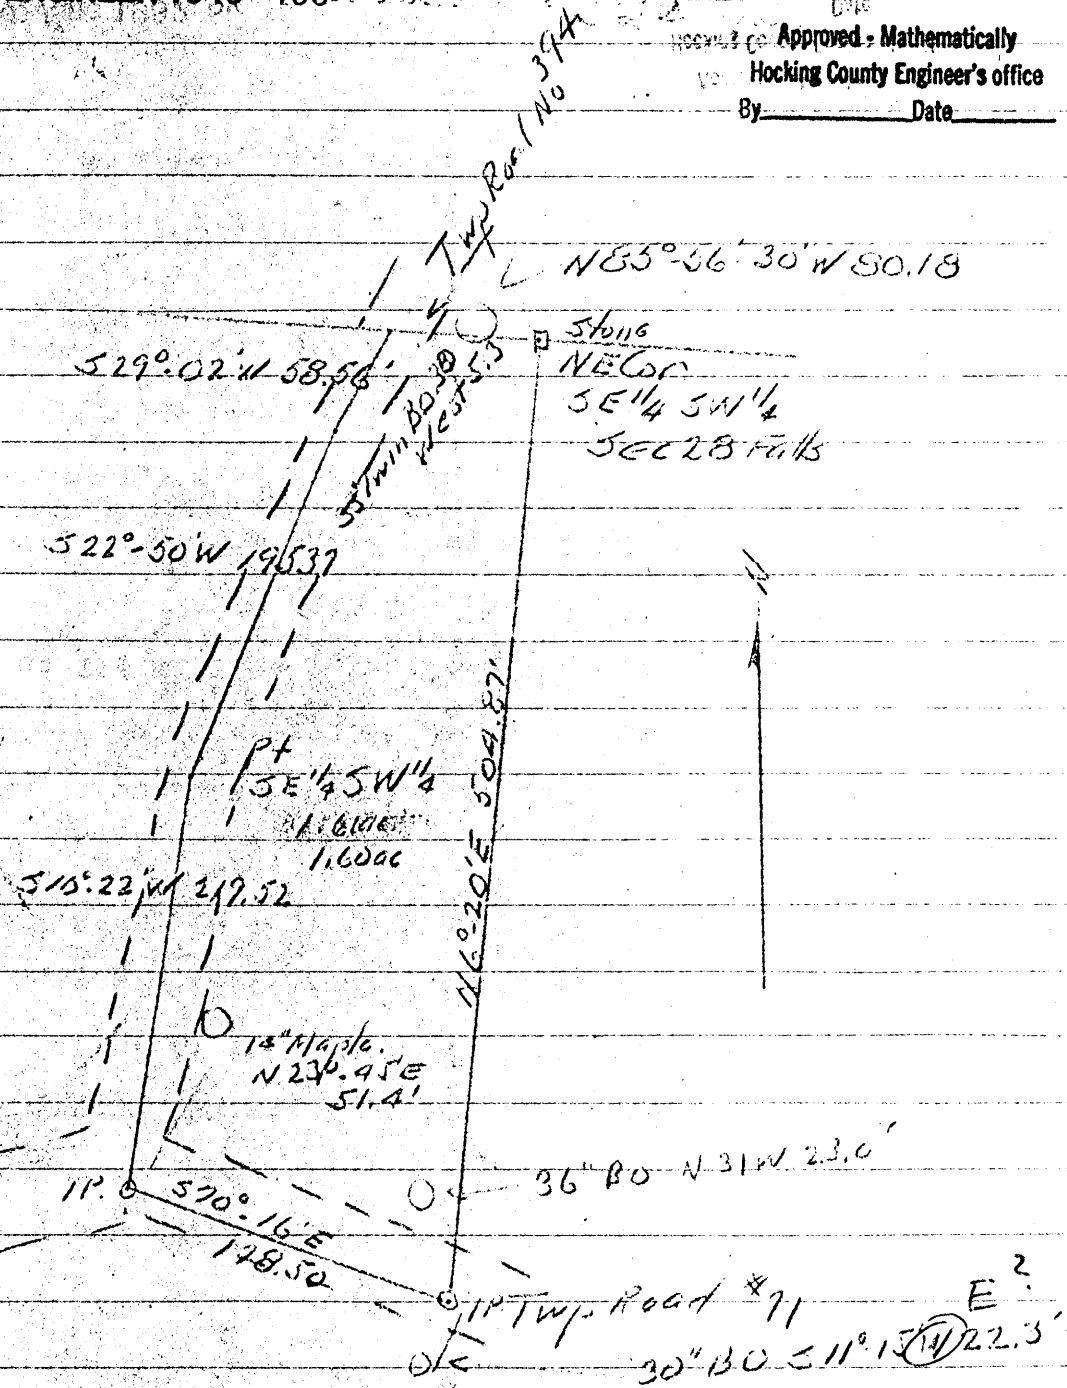 Approved - Mathematically
Hocking County Engineer's office
By Date
Twp Road No 394
N85°-56'-30"W 80.18
Stone
NE Cor
SE 1/4 SW 1/4
SEC 28 Falls
S29°-02'W 58.56'
West 5.3
S22°-50'W 195.37
Pt
SE 1/4 SW 1/4
1.60ac
N6°-20'E 504.87'
22'W
14" Maple
N 23°-45'E
51.4'
36" BO N 31 W 23.0'
I.P.
S70°-16'E
178.50
IP Twp Road #71
E ?
30" BO S 11° 15' W 22.3'